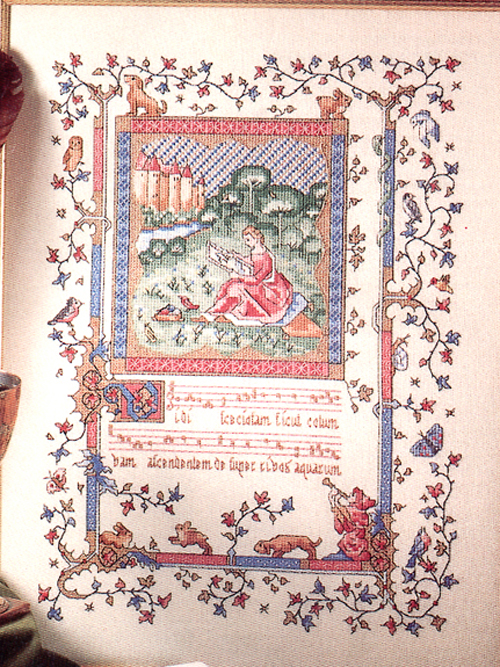 Vidi speciosam sicut colum
bam ascendentem de super rivos aquarum